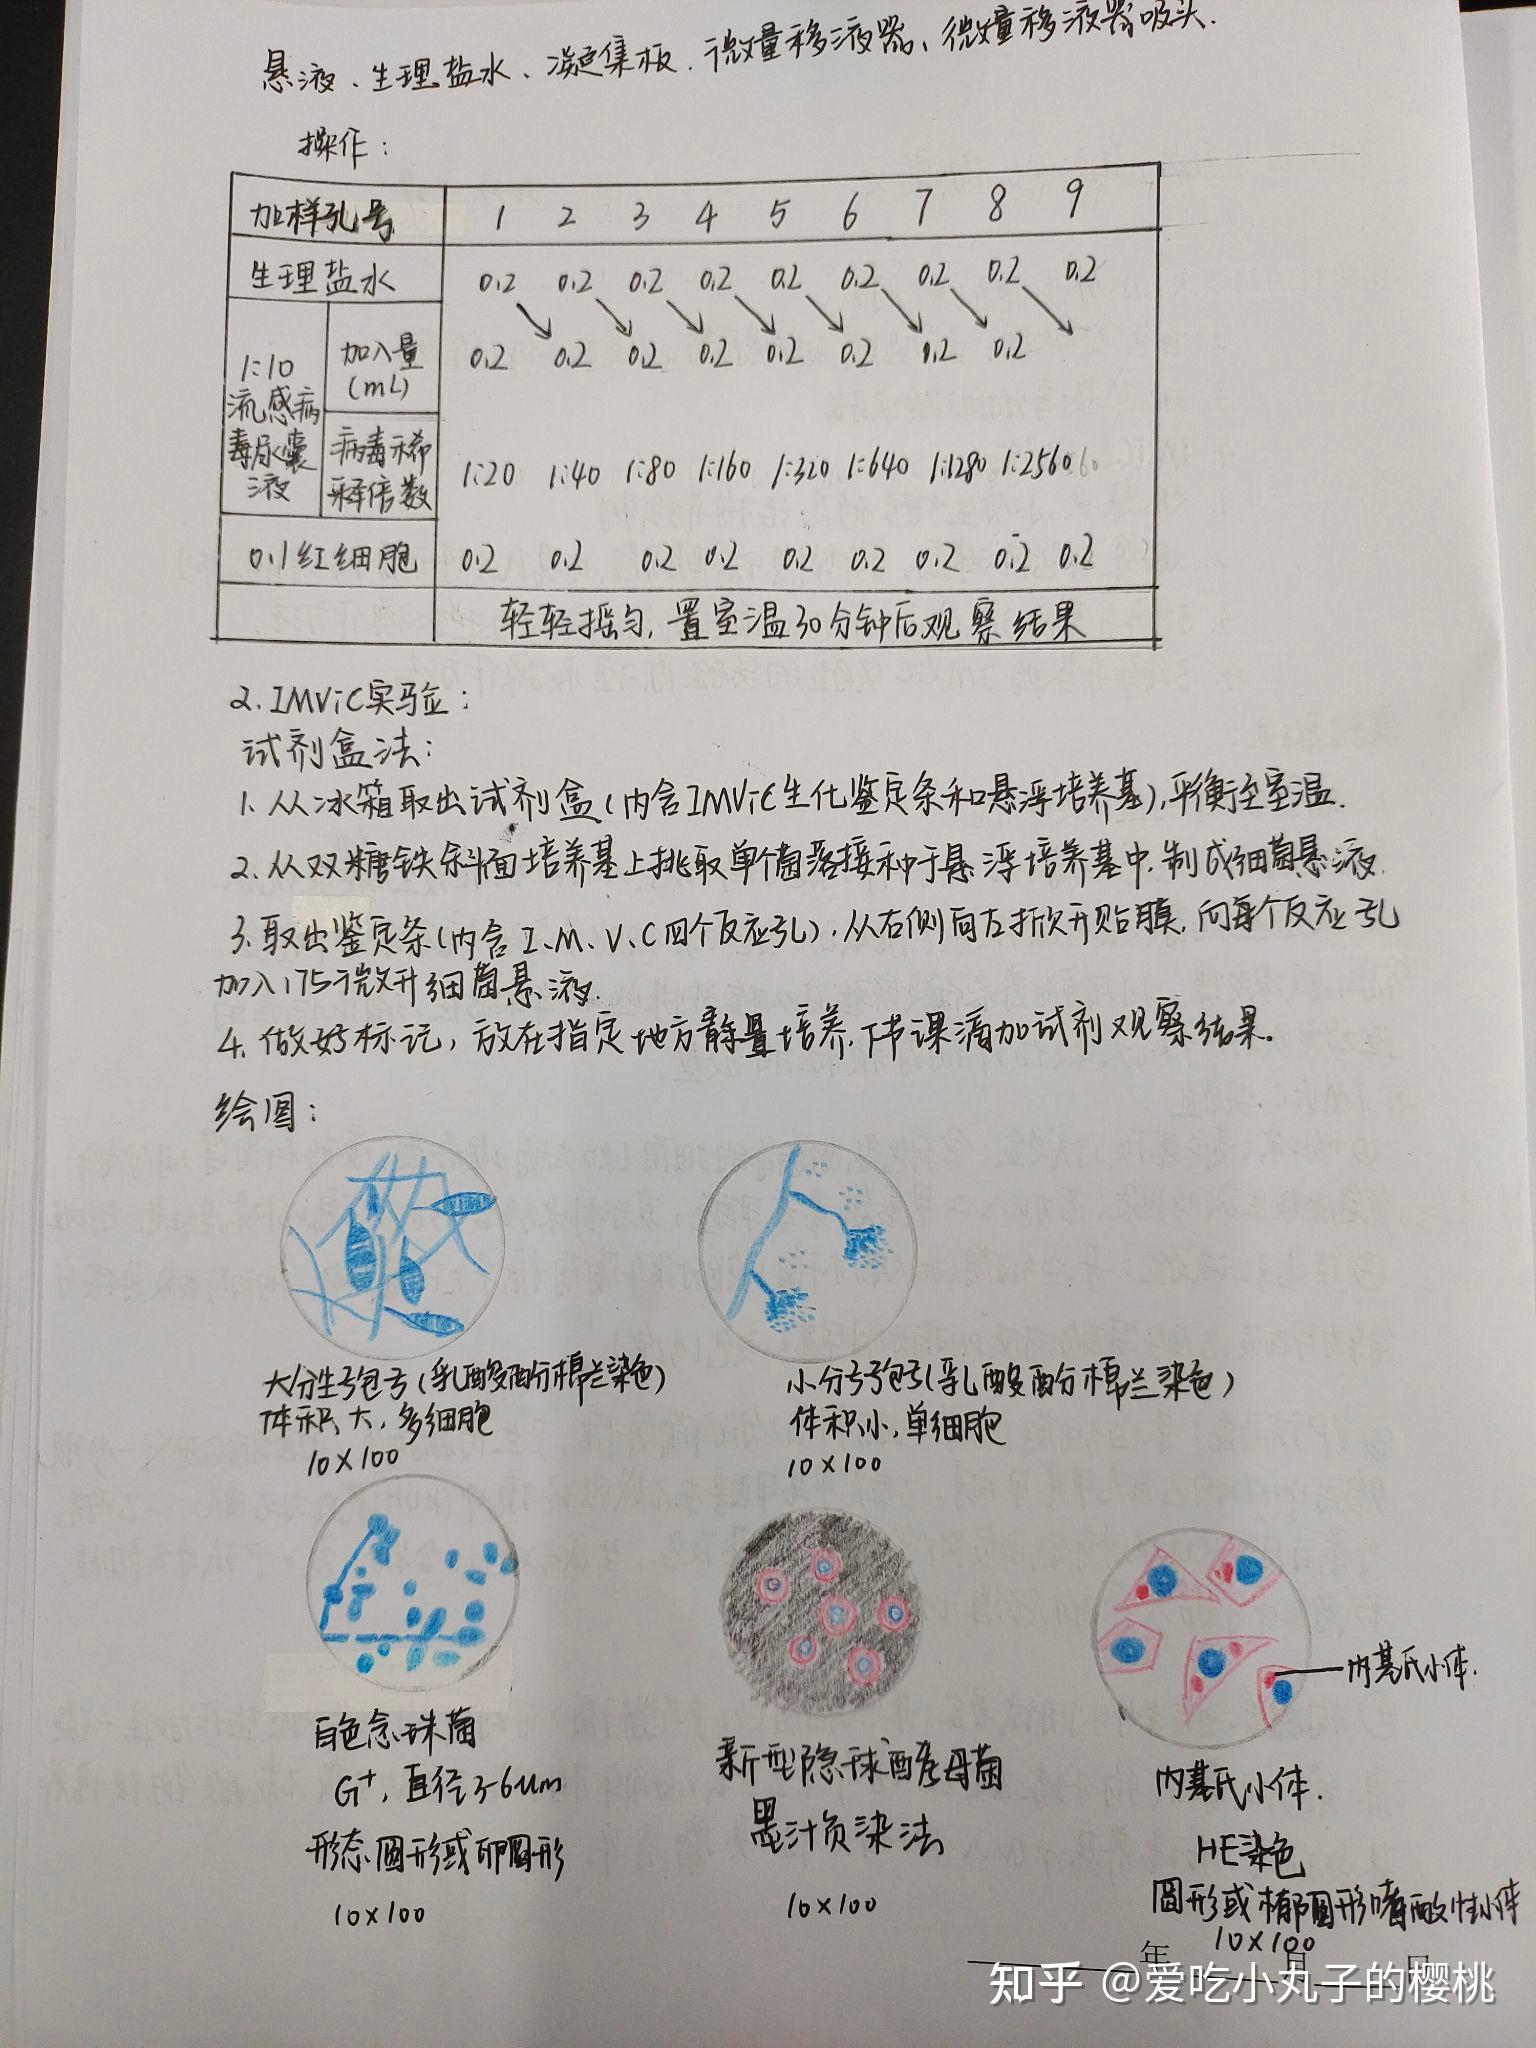 悬液、生理盐水、凝集板、微量移液器、微量移液器吸头.
操作:
加样孔号 1 2 3 4 5 6 7 8 9
生理盐水 0.2 0.2 0.2 0.2 0.2 0.2 0.2 0.2 0.2
1:10流感病毒尿囊液 加入量(mL) 0.2 0.2 0.2 0.2 0.2 0.2 0.2 0.2
病毒稀释倍数 1:20 1:40 1:80 1:160 1:320 1:640 1:1280 1:2560
0.1红细胞 0.2 0.2 0.2 0.2 0.2 0.2 0.2 0.2 0.2
轻轻摇匀,置室温30分钟后观察结果
2.IMViC实验:
试剂盒法:
1.从冰箱取出试剂盒(内含IMViC生化鉴定条和悬浮培养基),平衡至室温.
2.从双糖铁斜面培养基上挑取单个菌落接种于悬浮培养基中,制成细菌悬液.
3.取出鉴定条(内含I、M、V、C四个反应孔),从右侧向左掀开贴膜,向每个反应孔
加入175微升细菌悬液.
4.做好标记,放在指定地方静置培养,下节课滴加试剂观察结果。
绘图:
大分生孢子(乳酸酚棉兰染色)
体积大,多细胞
10×100
小分子孢子(乳酸酚棉兰染色)
体积小,单细胞
10×100
内基氏小体.
白色念珠菌
G+,直径3-6um
形态圆形或卵圆形
10×100
新型隐球酵母菌
墨汁负染法
10×100
内基氏小体.
HE染色
圆形或椭圆形嗜酸性小体
10×100
年 月 日
知乎 @爱吃小丸子的樱桃